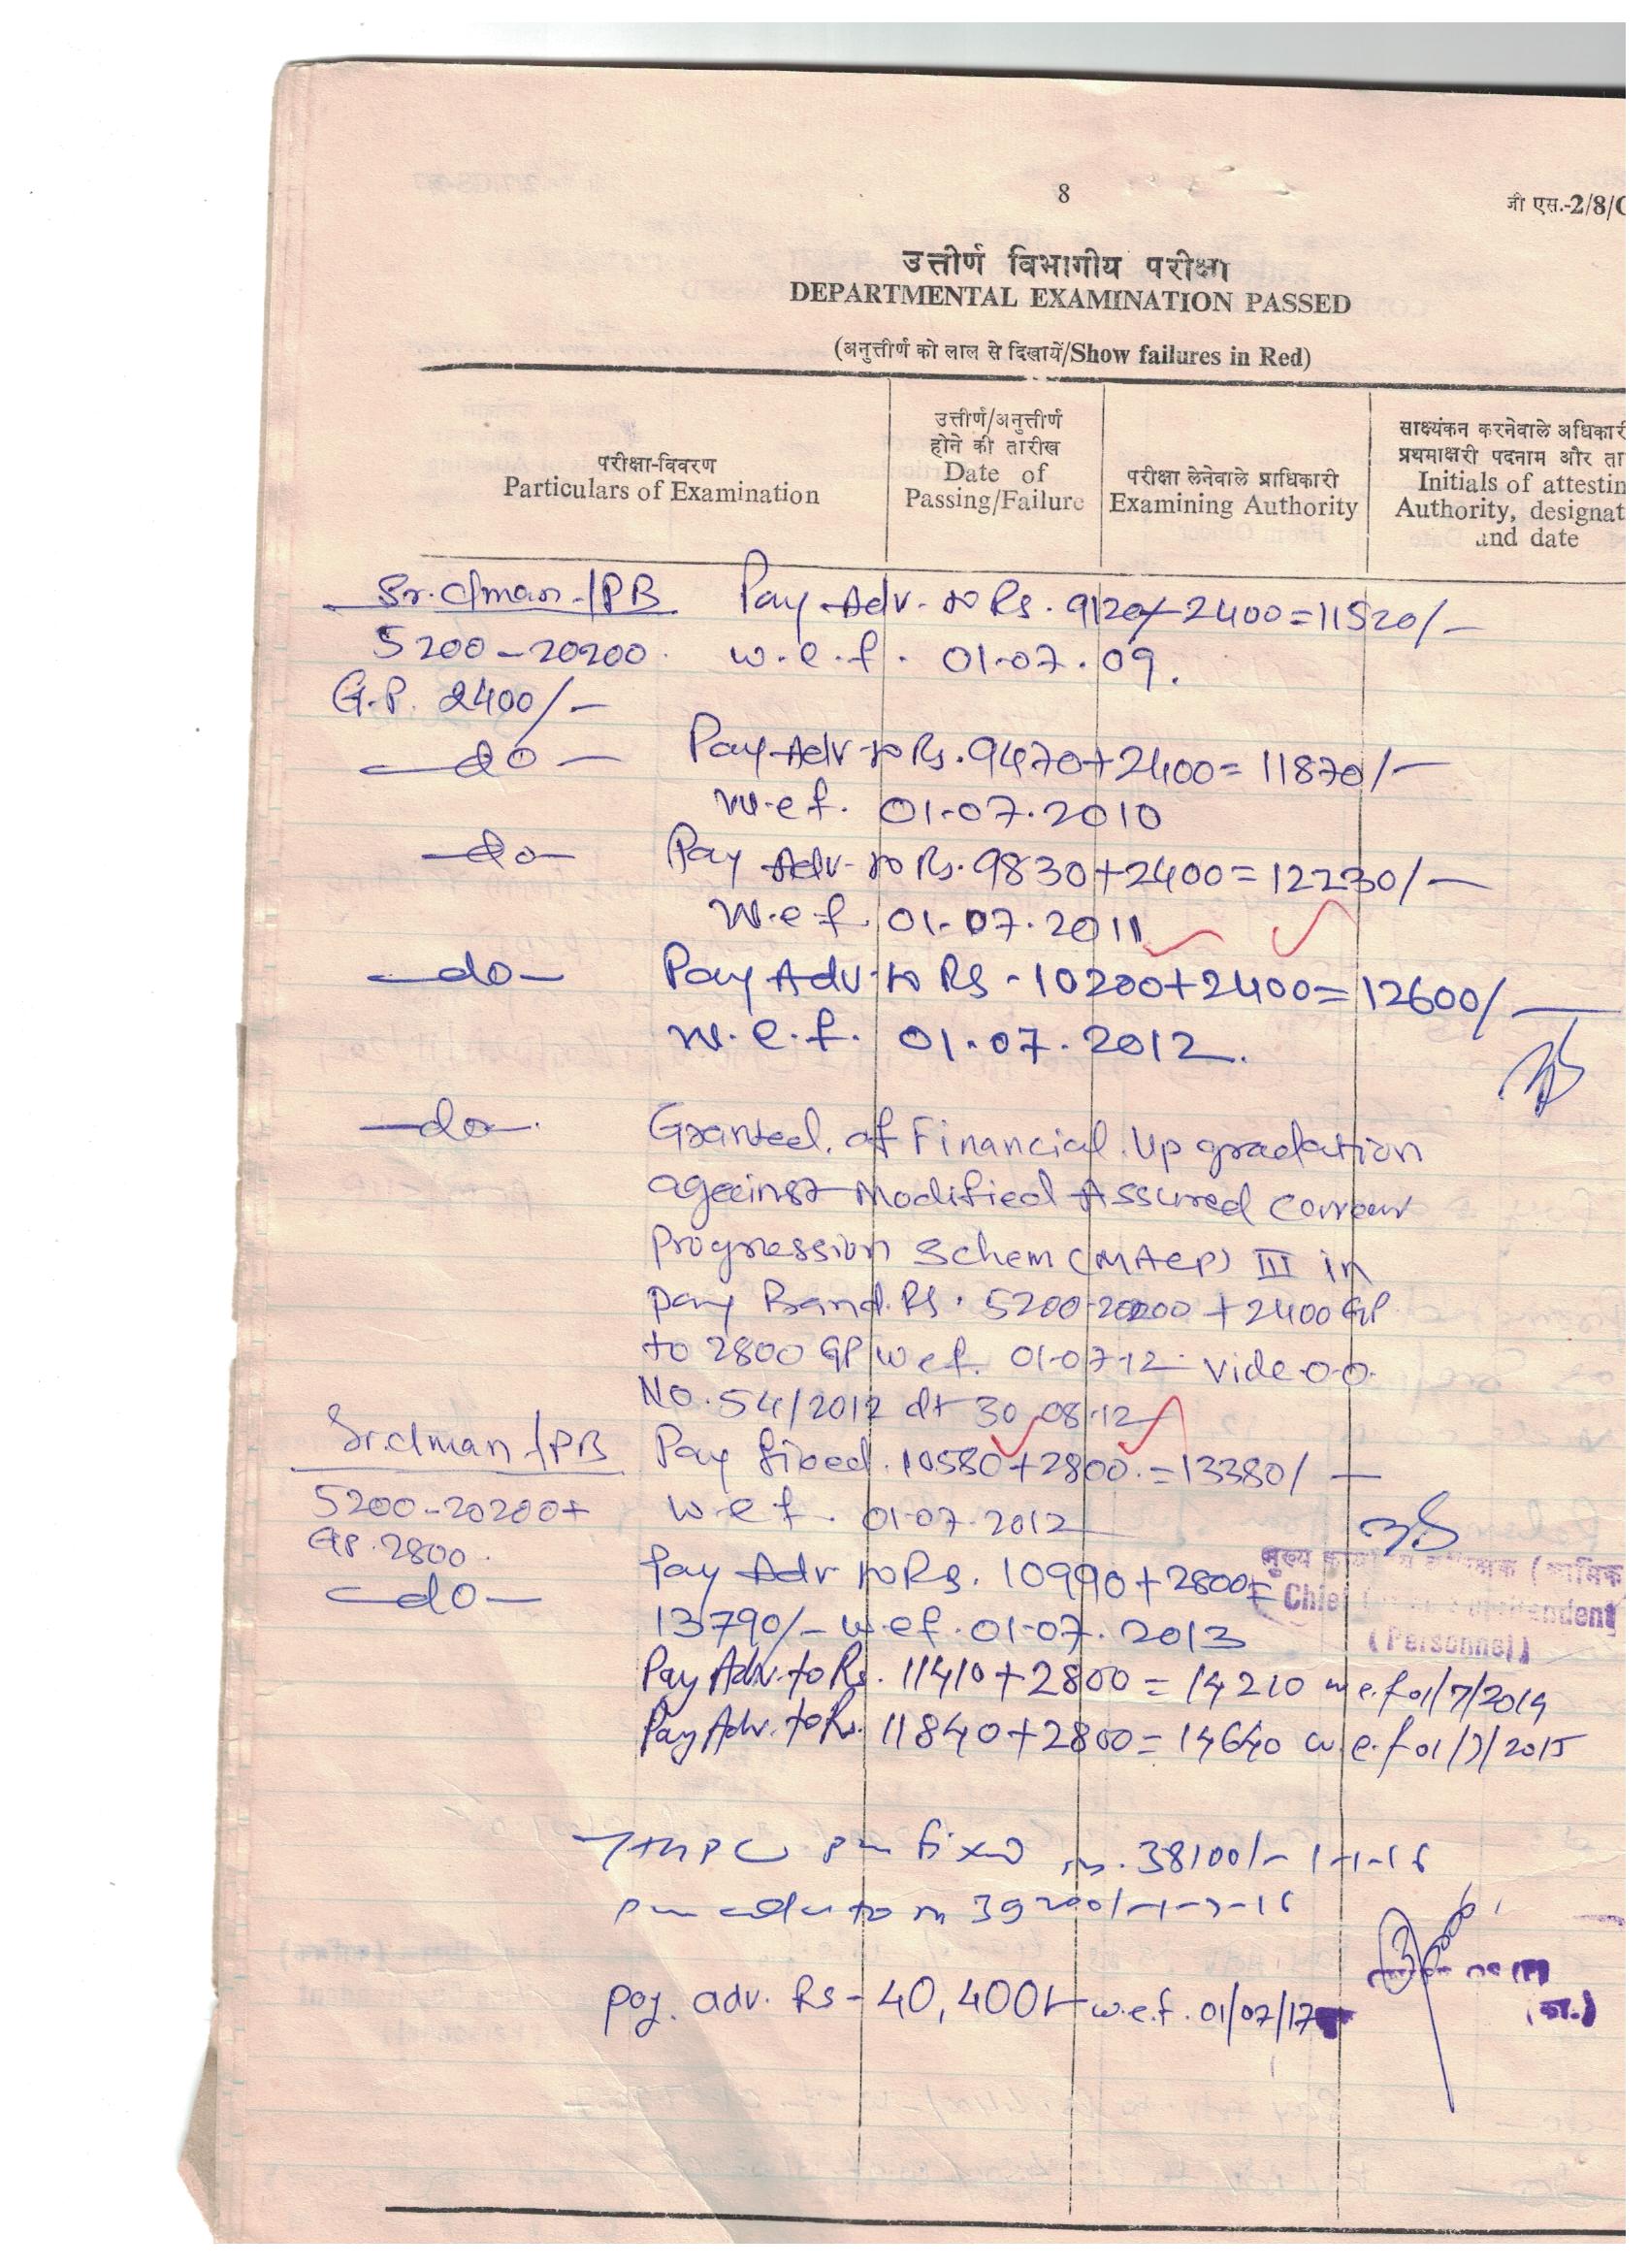 8
जी एस.-2/8/
उत्तीर्ण विभागीय परीक्षा
DEPARTMENTAL EXAMINATION PASSED
(अनुत्तीर्ण को लाल से दिखायें/Show failures in Red)
परीक्षा-विवरण
Particulars of Examination
उत्तीर्ण/अनुत्तीर्ण
होने की तारीख
Date of
Passing/Failure
परीक्षा लेनेवाले प्राधिकारी
Examining Authority
साक्ष्यंकन करनेवाले अधिकारी
प्रथमाक्षरी पदनाम और ता
Initials of attestin
Authority, designat
and date
Sr.Cman-/PB Pay Adv. to Rs. 9120+2400=11520/-
5200-20200. w.e.f. 01.07.09.
G.P. 2400/-
-do- Pay Adv to Rs. 9470+2400=11870/-
w.e.f. 01.07.2010
-do- Pay Adv- to Rs. 9830+2400=12230/-
w.e.f. 01.07.2011
-do- Pay Adv. to Rs - 10200+2400=12600/-
w.e.f. 01.07.2012.
-do-. Granted. of Financial Up gradation
against Modified Assured
Progression Schem (MACP) III in
pay Band. Rs. 5200-20200 +2400 GP
to 2800 GP w ef. 01-07-12 vide O.O.
No. 54/2012 dt 30.08.12
Sr.cman /PB Pay fixed. 10580+2800.=13380/-
5200-20200+ w e f. 01.07.2012
GP. 2800.
-do- Pay Adv to Rs. 10990+2800=
13790/- w.ef. 01.07.2013
Chief
(Personnel)
Pay Adv. to Rs. 11410+2800 = 14210 w e.f 01/7/2014
Pay Adv. to Rs. 11840+2800= 14640 w e.f 01/7/2015
7th PC fixed 38100/- 1-1-16
to 39200/- 1-7-16
pay. adv. Rs - 40,400/- w.e.f. 01/07/17
(का.)